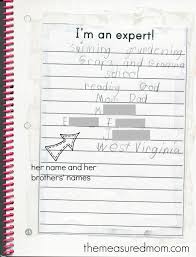 I'm an expert!
swimming gurdening
and
school
reading God
Mom Dad
M
E E
J
West Virginia
her name and her
brothers' names
themeasuredmom.com